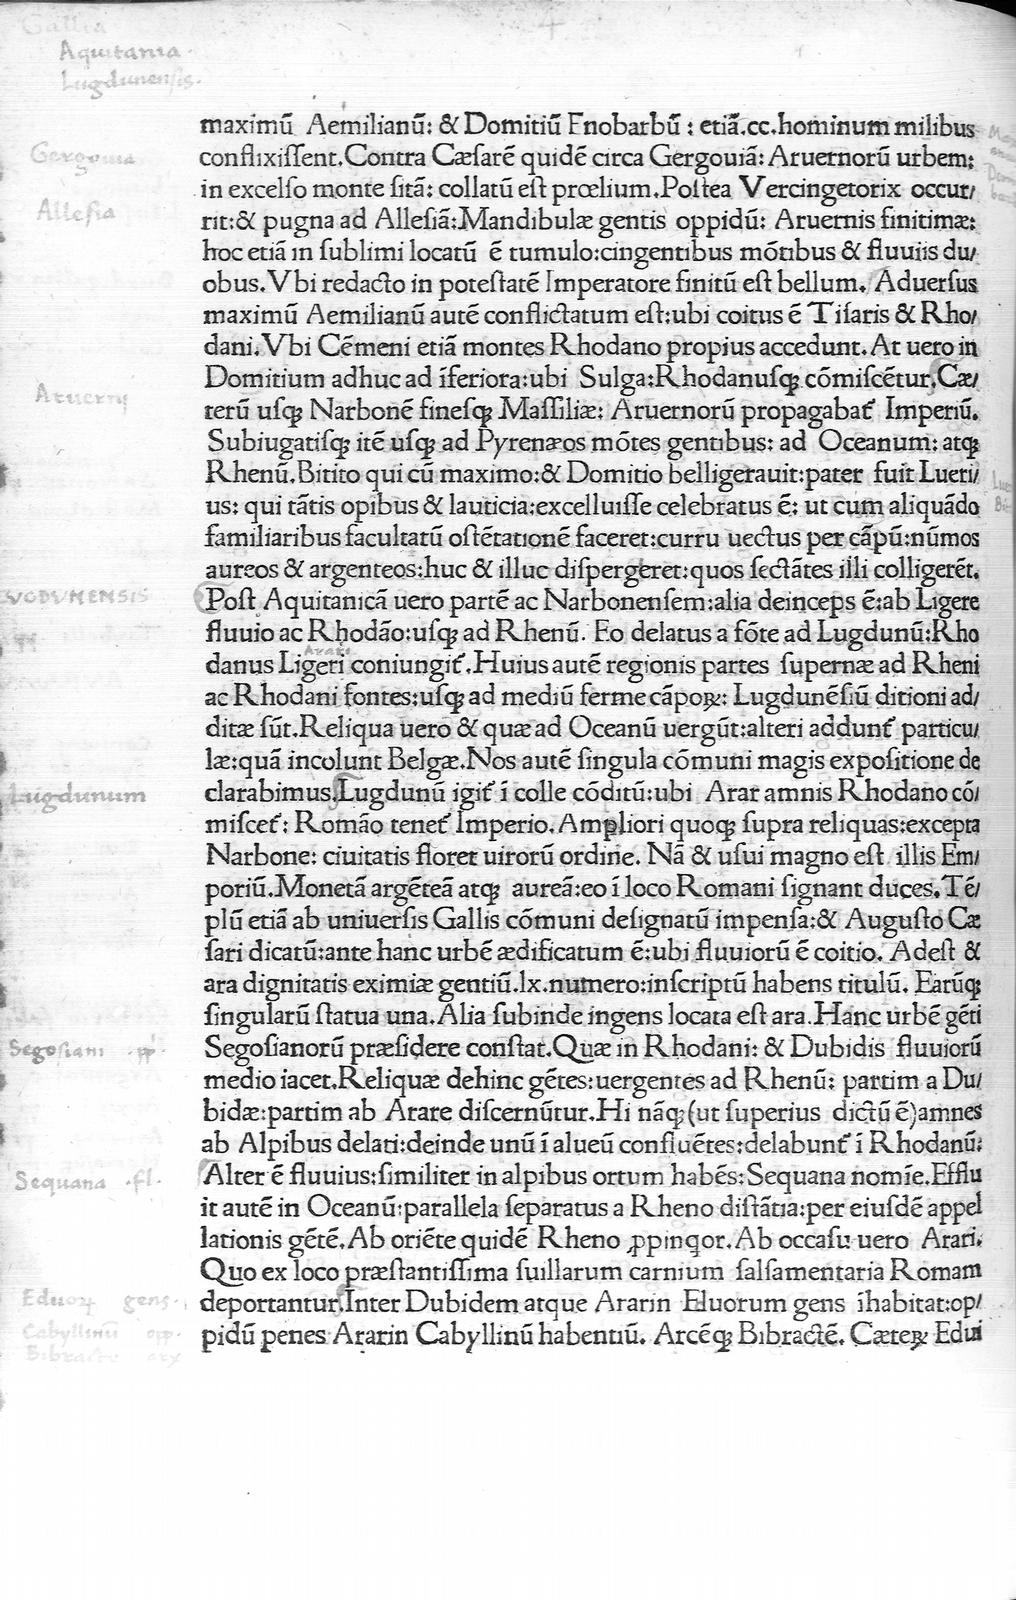 Gallia
Aquitania.
Lugdunensis.
maximū Aemilianū: & Domitiū Enobarbū : etiā.cc.hominum milibus
conflixiſſent.Contra Cæſarē quidē circa Gergouiā: Aruernorū urbem:
in excelſo monte ſitā: collatū eſt prœlium.Poſtea Vercingetorix occur/
rit:& pugna ad Alleſiā:Mandibulæ gentis oppidū: Aruernis finitimæ:
hoc etiā in ſublimi locatū ē tumulo:cingentibus mōtibus & fluuiis du/
obus.Vbi redacto in poteſtatē Imperatore finitū eſt bellum. Aduerſus
maximū Aemilianū autē conflictatum eſt:ubi coitus ē Tiſaris & Rho/
dani.Vbi Cēmeni etiā montes Rhodano propius accedunt.At uero in
Domitium adhuc ad īferiora:ubi Sulga:Rhodanuſqꝫ cōmiſcētur.Cæ/
terū uſqꝫ Narbonē fineſqꝫ Maſſiliæ: Aruernorū propagabat᷑ Imperiū.
Subiugatiſqꝫ itē uſqꝫ ad Pyrenæos mōtes gentibus: ad Oceanum: atqꝫ
Rhenū.Bitito qui cū maximo:& Domitio belligerauit:pater fuit Lueri/
us: qui tātis opibus & lauticia:excelluiſſe celebratus ē: ut cum aliquādo
familiaribus facultatū oſtētationē faceret:curru uectus per cāpū:nūmos
aureos & argenteos:huc & illuc diſpergeret:quos ſectātes illi colligerēt.
Poſt Aquitanicā uero partē ac Narbonenſem:alia deinceps ē:ab Ligere
fluuio ac Rhodāo:uſqꝫ ad Rhenū. Eo delatus a fōte ad Lugdunū:Rho
danus Ligeri coniungit᷑.Huius autē regionis partes ſupernæ ad Rheni
ac Rhodani fontes:uſqꝫ ad mediū ferme cāpoꝝ: Lugdunēſiū ditioni ad/
ditæ ſūt.Reliqua uero & quæ ad Oceanū uergūt:alteri addunt᷑ particu/
læ:quā incolunt Belgæ.Nos autē ſingula cōmuni magis expoſitione de
clarabimus.Lugdunū igit᷑ ī colle cōditū:ubi Arar amnis Rhodano cō/
miſcet᷑: Romāo tenet᷑ Imperio.Ampliori quoqꝫ ſupra reliquas:excepta
Narbone: ciuitatis floret uirorū ordine. Nā & uſui magno eſt illis Em/
poriū.Monetā argēteā atqꝫ aureā:eo ī loco Romani ſignant duces.Tē/
plū etiā ab uniuerſis Gallis cōmuni deſignatū impenſa:& Auguſto Cæ
ſari dicatū:ante hanc urbē ædificatum ē:ubi fluuiorū ē coitio. Adeſt &
ara dignitatis eximiæ gentiū.lx.numero:inſcriptū habens titulū. Earūqꝫ
ſingularū ſtatua una.Alia ſubinde ingens locata eſt ara.Hanc urbē gēti
Segoſianorū præſidere conſtat.Quæ in Rhodani: & Dubidis fluuiorū
medio iacet.Reliquæ dehinc gētes:uergentes ad Rhenū: partim a Du/
bidæ:partim ab Arare diſcernūtur.Hi nāqꝫ(ut ſuperius dictū ē)amnes
ab Alpibus delati:deinde unū ī alueū confluētes:delabunt᷑ ī Rhodanū:
Alter ē fluuius:ſimiliter in alpibus ortum habēs:Sequana nomīe.Efflu
it autē in Oceanū:parallela ſeparatus a Rheno diſtātia:per eiuſdē appel
lationis gētē.Ab oriēte quidē Rheno ꝓpinqor.Ab occaſu uero Arari.
Quo ex loco præſtantiſſima ſuillarum carnium ſalſamentaria Romam
deportantur.Inter Dubidem atque Ararin Eluorum gens īhabitat:op/
pidū penes Ararin Cabyllinū habentiū. Arcēqꝫ Bibractē. Cæteꝝ Edui
Gergouia
Alleſia
Aruerni
LVGDVNENSIS
Arari
Luigdunum
Segosiani .pp.
Sequana .fl.
Eduoꝝ gens.
Cabyllinū opp.
Bibracte arx